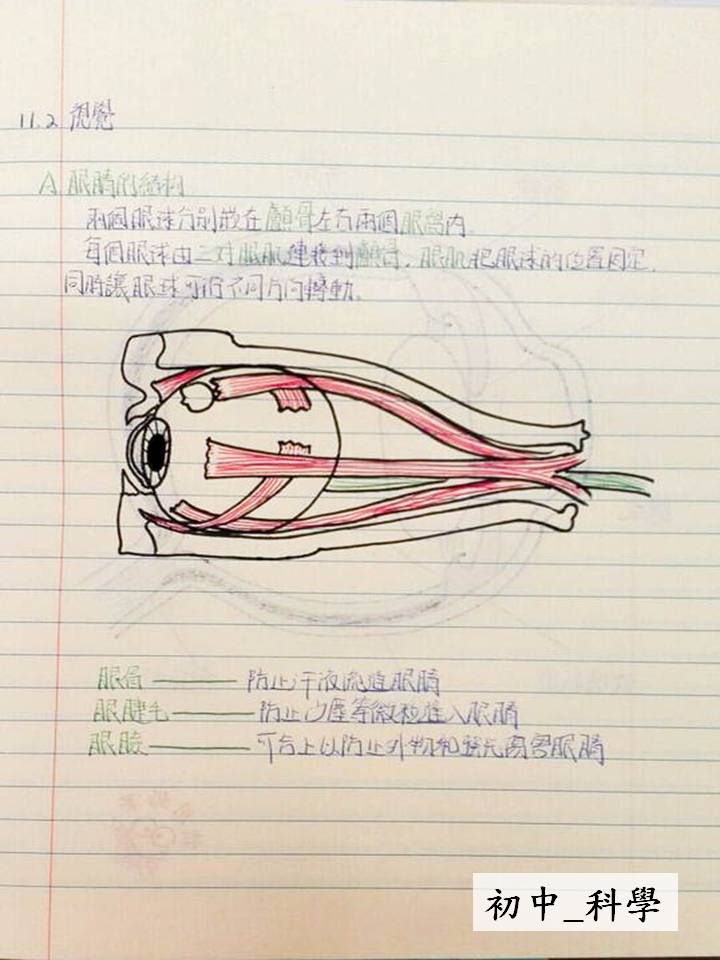 11.2 視覺
A 眼睛的結構
兩個眼球分別放在顱骨左右兩個眼窩內.
每個眼球由三对眼肌連接到顱骨. 眼肌把眼球的位置固定.
同時讓眼球可徃不同方向轉動.
眼眉 —— 防止汗液流進眼睛
眼睫毛 —— 防止沙塵等微粒進入眼睛
眼瞼 —— 可合上以防止外物和強光傷害眼睛
初中_科學